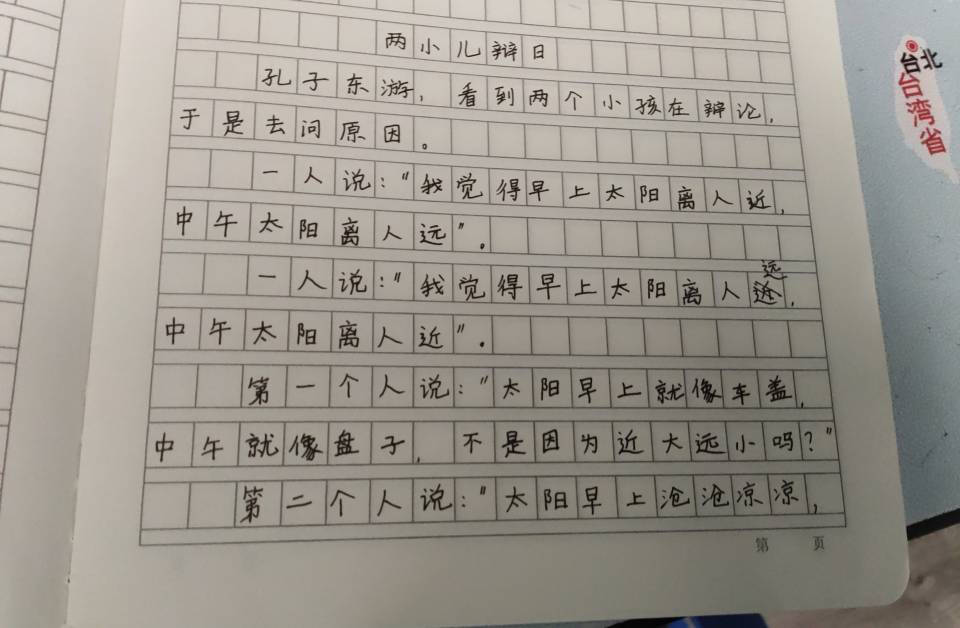 两小儿辩日
孔子东游，看到两个小孩在辩论，
于是去问原因。
一人说：“我觉得早上太阳离人近，
中午太阳离人远”。
远
一人说：“我觉得早上太阳离人，
中午太阳离人近”。
第一个人说：“太阳早上就像车盖，
中午就像盘子，不是因为近大远小吗？”
第二个人说：“太阳早上沧沧凉凉，
第 页
台北
台湾省